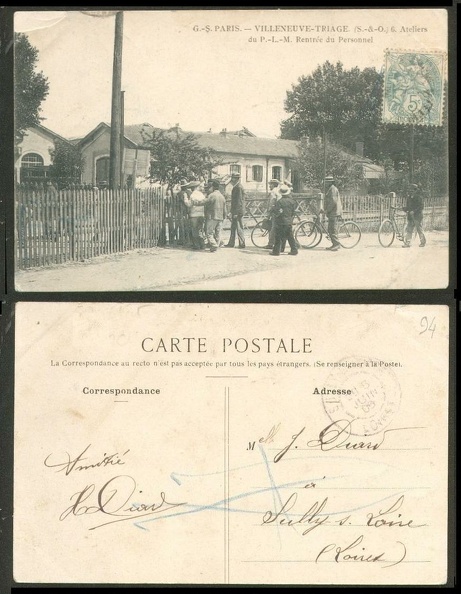 G.-S. PARIS. — VILLENEUVE-TRIAGE. (S.-&-O.) 6. Ateliers
du P.-L.-M. Rentrée du Personnel
5
94
CARTE POSTALE
La Correspondance au recto n'est pas acceptée par tous les pays étrangers. (Se renseigner à la Poste).
Correspondance
Adresse
Amitié
H Diard
M J. Diard
à
Sully s. Loire
(Loiret)